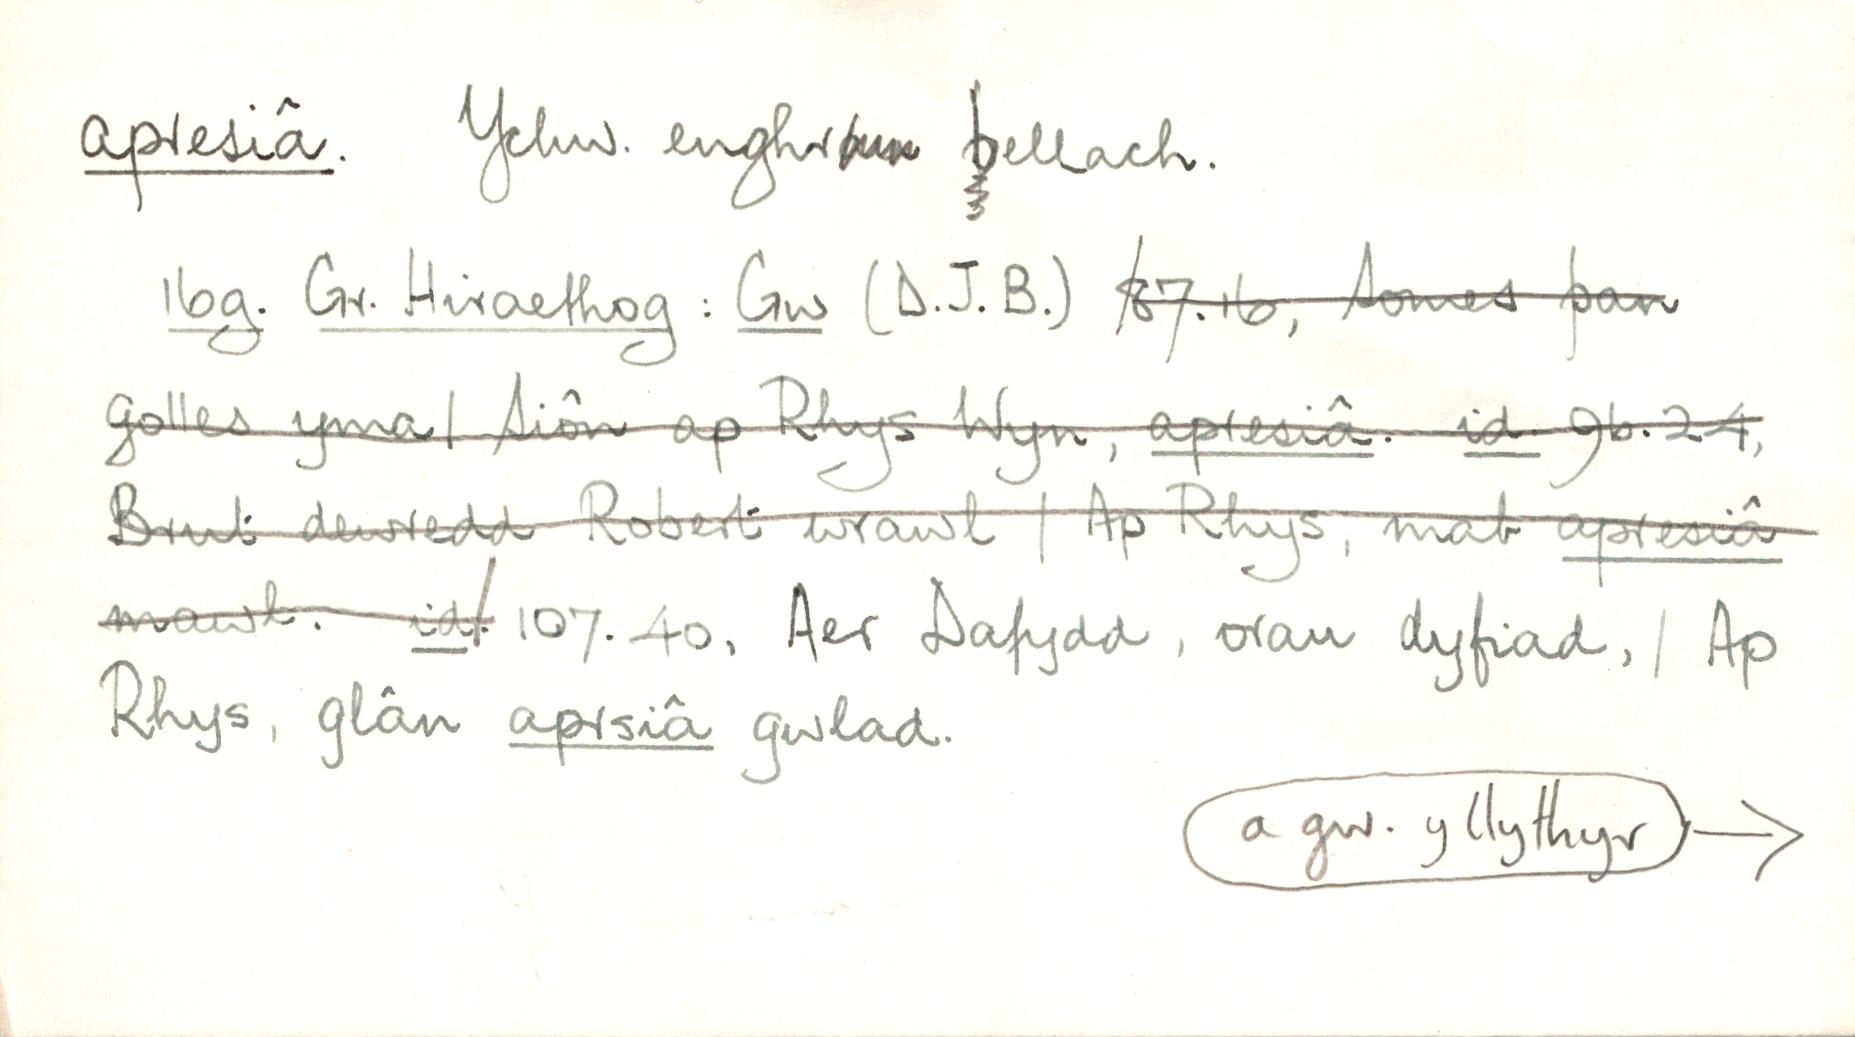 apresiâ. Ychw. enghr bellach.
16g. Gr. Hiraethog: Gw (D.J.B.) 87.16, Somes pan
golles yma / Siôn ap Rhys Wyn, apresiâ. id. 96.24,
Brut dewredd Robert wrawl / Ap Rhys, mab apresiâ
mawl. id. 107.40, Aer Dafydd, orau dyfiad, / Ap
Rhys, glân aprsiâ gwlad.
a gw. y llythyr →